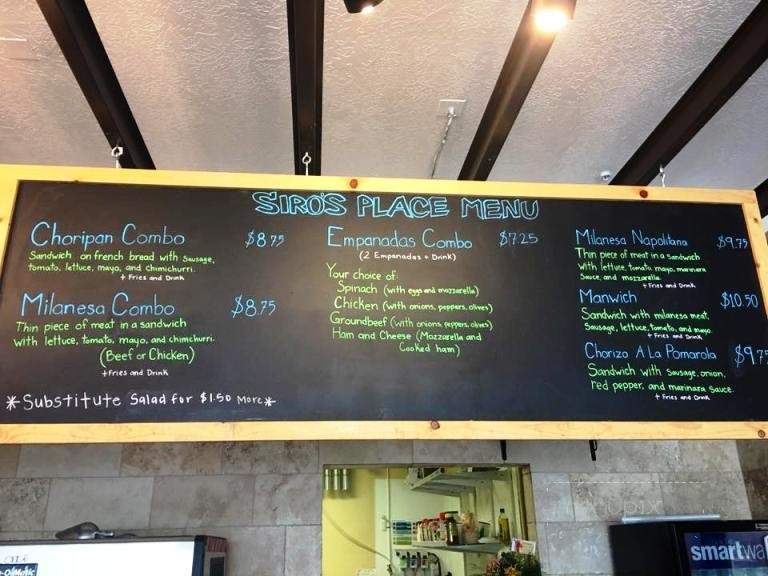 SIRO'S PLACE MENU
Choripan Combo $8.75
Sandwich on french bread with sausage,
tomato, lettuce, mayo, and chimichurri.
+ Fries and Drink
Milanesa Combo $8.75
Thin piece of meat in a sandwich
with lettuce, tomato, mayo, and chimchurri.
(Beef or Chicken)
+Fries and Drink
*Substitute Salad for $1.50 More*
Empanadas Combo $7.25
(2 Empanadas + Drink)
Your choice of:
Spinach (with eggs and mozzarella)
Chicken (with onions, peppers, olives)
Groundbeef (with onions, peppers, olives)
Ham and Cheese (Mozzarella and
Cooked ham)
Milanesa Napolitana $9.75
Thin piece of meat in a sandwich
with lettuce, tomato, mayo, marinara
sauce, and mozzarella.
+ Fries and Drink
Manwich $10.50
Sandwich with milanesa meat,
Sausage, lettuce, tomato, and mayo.
+ Fries and Drink
Chorizo A La Pomarola $9.75
Sandwich with sausage, onion,
red pepper, and marinara sauce.
+ Fries and Drink
smartwa